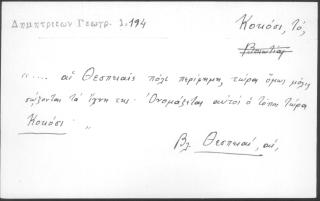 Δημητριεων Γεωγρ. 1.194
Κοκόσι, τό,
Βοιωτίας
"..... αἱ Θεσπιαὶς πόλι περίφημη, τώρα ὅμως μόλις
σῴζονται τὰ ἴχνη της · Ὀνομάζεται αὐτοῦ ὁ τόπος τώρα
Κοκόσι · "
Βλ. Θεσπιαί, αἱ,